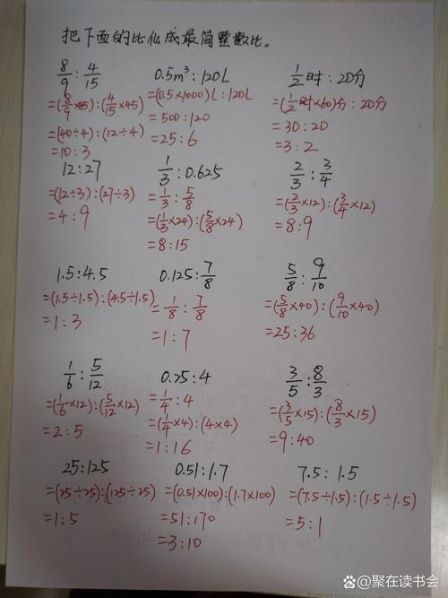 把下面的比化成最简整数比。
8/9 : 4/15
=(8/9×45):(4/15×45)
=(40÷4):(12÷4)
=10:3
0.5m³:120L
=(0.5×1000)L:120L
=500:120
=25:6
1/2时:20分
=(1/2时×60)分:20分
=30:20
=3:2
12:27
=(12÷3):(27÷3)
=4:9
1/3:0.625
=1/3:5/8
=(1/3×24):(5/8×24)
=8:15
2/3:3/4
=(2/3×12):(3/4×12)
=8:9
1.5:4.5
=(1.5÷1.5):(4.5÷1.5)
=1:3
0.125:7/8
=1/8:7/8
=1:7
5/8:9/10
=(5/8×40):(9/10×40)
=25:36
1/6:5/12
=(1/6×12):(5/12×12)
=2:5
0.25:4
=1/4:4
=(1/4×4):(4×4)
=1:16
3/5:8/3
=(3/5×15):(8/3×15)
=9:40
25:125
=(25÷25):(125÷25)
=1:5
0.51:1.7
=(0.51×100):(1.7×100)
=51:170
=3:10
7.5:1.5
=(7.5÷1.5):(1.5÷1.5)
=5:1
@聚在读书会